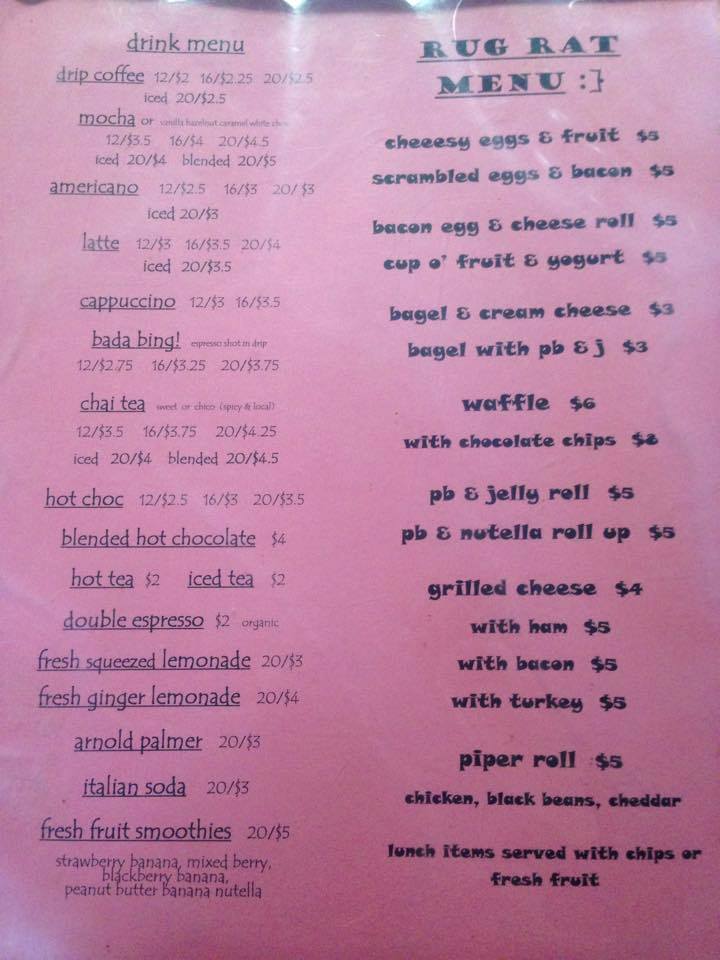 drink menu
drip coffee 12/$2 16/$2.25 20/$2.5
iced 20/$2.5
mocha or vanilla hazelnut caramel white choc
12/$3.5 16/$4 20/$4.5
iced 20/$4 blended 20/$5
americano 12/$2.5 16/$3 20/$3
iced 20/$3
latte 12/$3 16/$3.5 20/$4
iced 20/$3.5
cappuccino 12/$3 16/$3.5
bada bing! espresso shot in drip
12/$2.75 16/$3.25 20/$3.75
chai tea sweet or chico (spicy & local)
12/$3.5 16/$3.75 20/$4.25
iced 20/$4 blended 20/$4.5
hot choc 12/$2.5 16/$3 20/$3.5
blended hot chocolate $4
hot tea $2 iced tea $2
double espresso $2 organic
fresh squeezed lemonade 20/$3
fresh ginger lemonade 20/$4
arnold palmer 20/$3
italian soda 20/$3
fresh fruit smoothies 20/$5
strawberry banana, mixed berry,
blackberry banana,
peanut butter banana nutella
RUG RAT
MENU :}
cheeesy eggs & fruit $5
scrambled eggs & bacon $5
bacon egg & cheese roll $5
cup o' fruit & yogurt $5
bagel & cream cheese $3
bagel with pb & j $3
waffle $6
with chocolate chips
pb & jelly roll $5
pb & nutella roll up $5
grilled cheese $4
with ham $5
with bacon $5
with turkey $5
piper roll $5
chicken, black beans, cheddar
lunch items served with chips or
fresh fruit